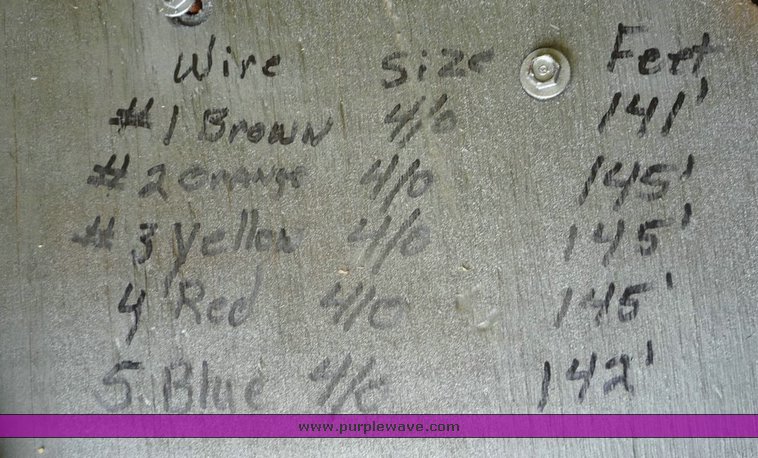 Wire Size Feet
#1 Brown 4/0 141'
#2 Orange 4/0 145'
#3 Yellow 4/0 145'
4 Red 4/0 145'
5 Blue 4/0 142'
www.purplewave.com